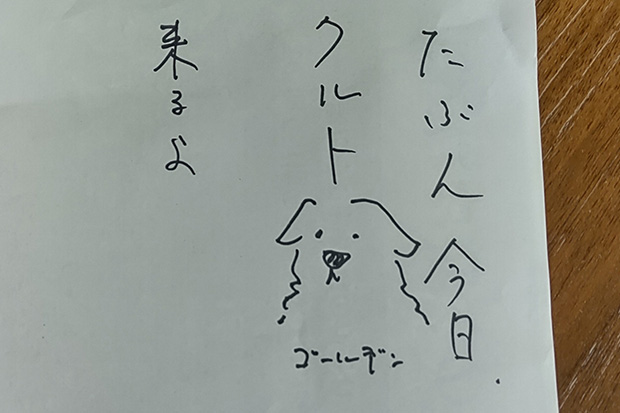 たぶん今日
クルト
ゴールデン
来るよ